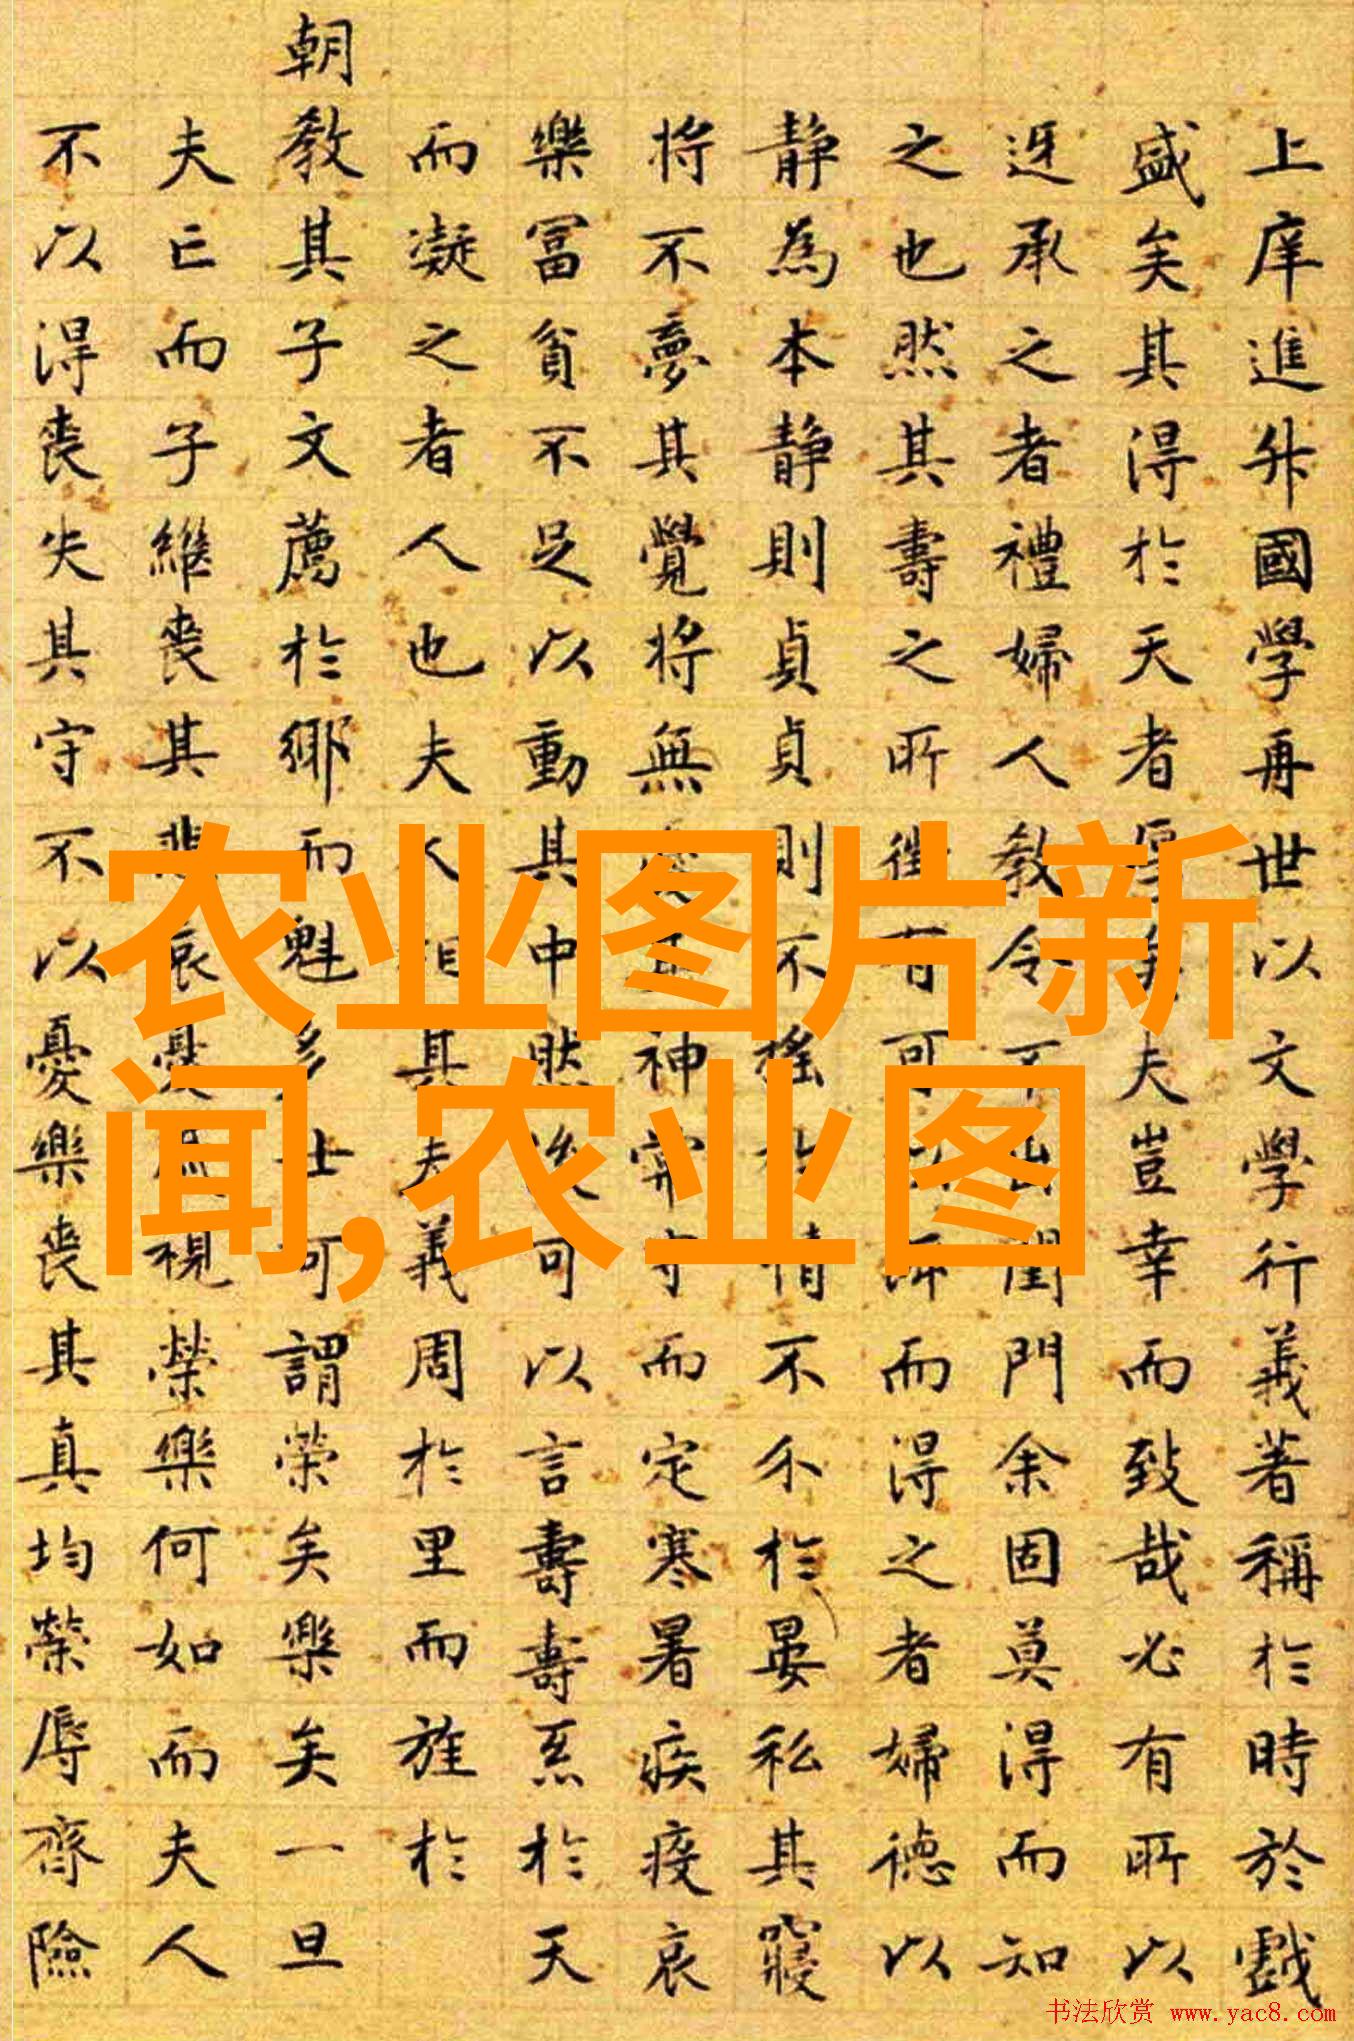 上庠進升國學再世以文學行義著稱於時於戲
盛矣其得於天者厚矣夫豈幸而致哉必有所以
迓承之者禮婦人教令不出閨門余固莫得而知
之也然其壽之所徃有可以而得之者婦德以
静為本静則貞貞則不搖於情不介於晏私其寢
將不夢其覺將無其神完守而定寒暑疾疫哀
樂冨貧不足以動其中然後可以言壽壽系於天
而凝之者人也夫人相其夫義周於里而旌於
朝教其子文薦於鄉而魁多士可謂榮矣樂矣一旦
夫亡而子繼喪其悲哀憂視榮樂何如而夫人
不以得喪失其守不以憂樂喪其真均榮辱齊險
农业图片新
闻,农业图
书法欣赏 www.yac8.com